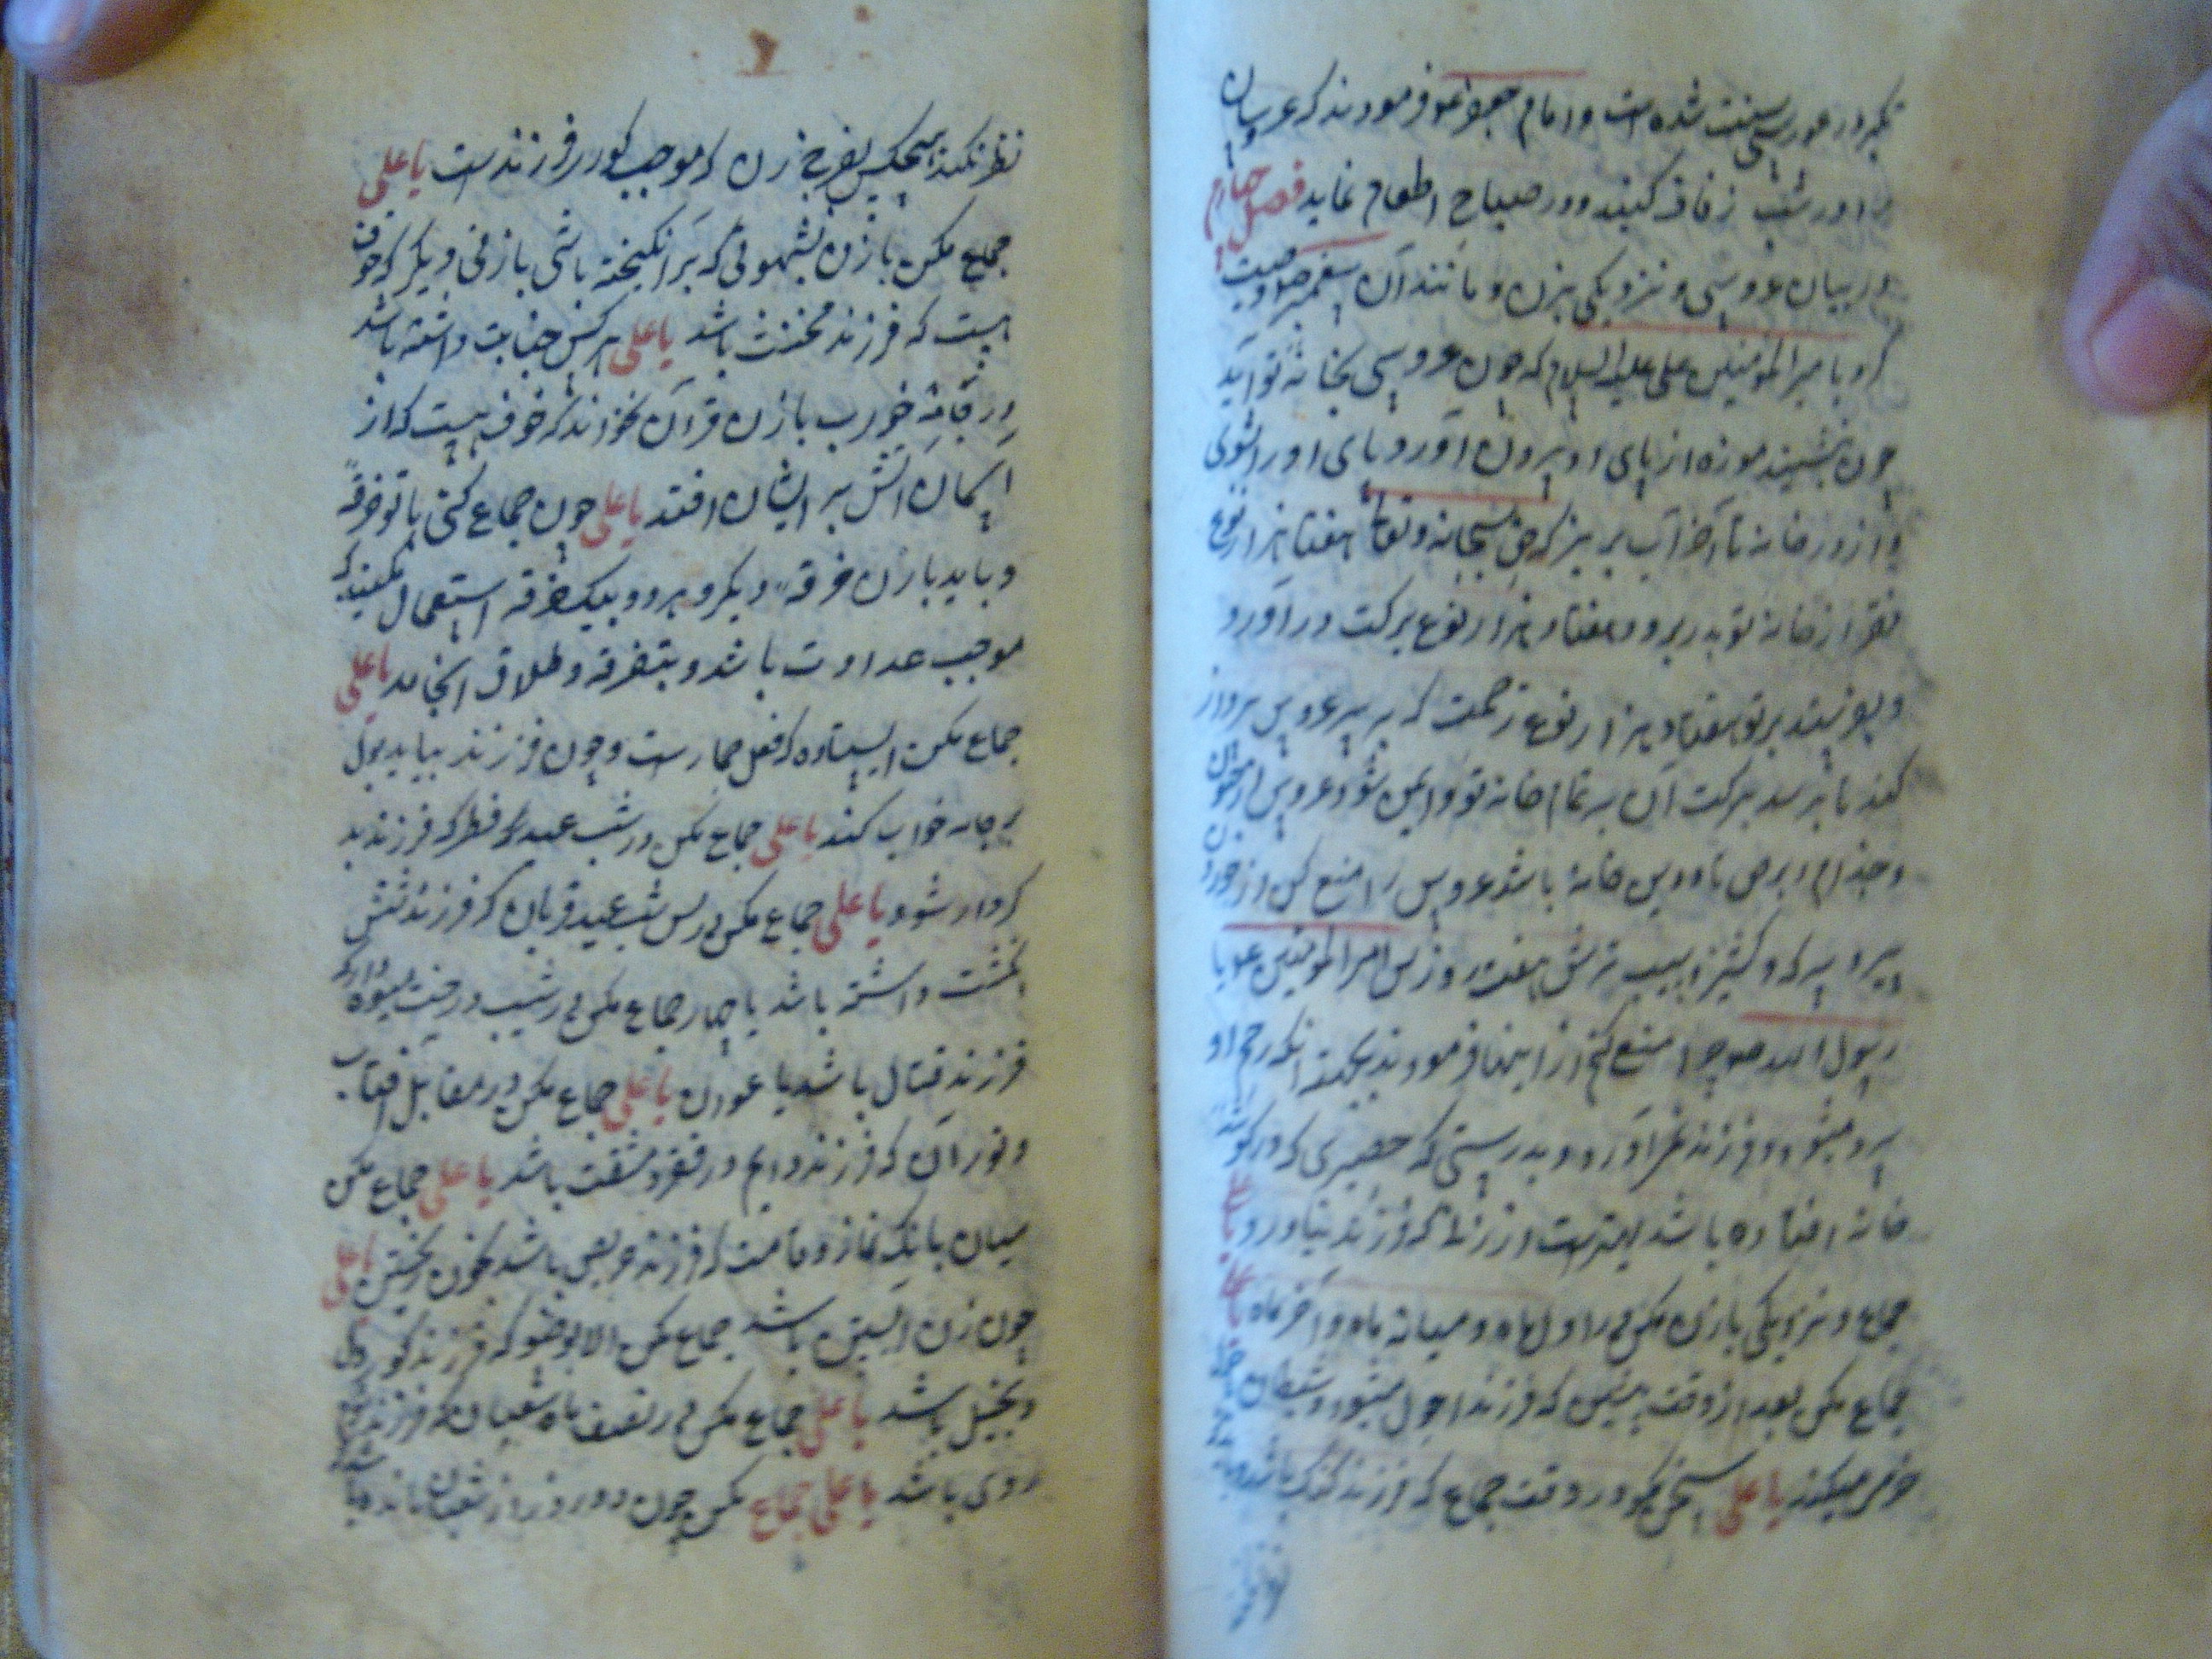 سنت شده است و امام جعفر فرمودند که عروسان
را در شب زفاف کنید و در صباح اطعام نماید فصل چهارم
در بیان عروسی و نزدیکی بزن و مانند آن پیغمبر وصیت
کرد با میرالمؤمنین علی علیه السلام که چون عروسی بخانه تو آید
چون بنشیند موزه از پای او بیرون آور و پای او را بشوی
و از در خانه تا آخر آب بریز که حق سبحانه و تعالی هفتاد هزار نوع
فقر از خانه تو بدر برد و هفتاد هزار نوع برکت در آورد
و بفرستد بر تو هفتاد هزار نوع رحمت که بر سر عروس پرواز
کند تا برسد برکت آن به تمام خانه تو و ایمن شود عروس از جنون
و جذام و برص تا در این خانه باشد عروس را منع کن از خوردن
شیر و سرکه و کشنیز و سیب ترش هفت روز پس امیرالمؤمنین ع یا
رسول الله چرا منع کنم از اینها فرمودند بجهة آنکه رحم او
سرد میشود و فرزند نمی آورد و بدرستی که حصیری که در گوشه
خانه افتاده باشد بهتر است از زنی که فرزند نیاورد یا علی
جماع و نزدیکی بازن مکن در اول ماه و میانه ماه و آخر ماه یا علی
جماع مکن بعد از وقت پیشین که فرزند احول میشود و شیطان
میکند یا علی سخن مگو در وقت جماع که فرزند گنگ باشد
نظر نکند هیچکس بفرج زن که موجب کوری فرزند است یا علی
جماع مکن با زن بشهوتی که برانگیخته باشی با زنی دیگر که خوف
هست که فرزند مخنث باشد یا علی هر کس جنابت داشته باشد
در جامه خواب با زن قرآن نخواند که خوف هست که از
آسمان آتش بر ایشان افتد یا علی چون جماع کنی با تو خرقهٔ
و باید با زن خرقهٔ دیگر و هر دو بیک خرقه استعمال نکنید که
موجب عداوت باشد و بتفرقه و طلاق انجامد یا علی
جماع مکن ایستاده که فعل حمار است و چون فرزند بیاید بول
بر جامه خواب کند یا علی جماع مکن در شب عید فطر که فرزند بد
کردار شود یا علی جماع مکن در شب عید قربان که فرزند شش
انگشت داشته باشد یا چهار جماع مکن در شیب درخت میوه دار که
فرزند قتال باشد یا عوان یا علی جماع مکن در مقابل آفتاب
و نور آن که فرزند دایم در فقر و مشقت باشد یا علی جماع مکن
میان بانک نماز و قامت که فرزند حریص باشد بخون ریختن یا علی
چون زن آبستن باشد جماع مکن الا بوضو که فرزند کور دل
و بخیل باشد یا علی جماع مکن در نصف ماه شعبان که فرزند
روی باشد یا علی جماع مکن چون دو روز از شعبان مانده باشد